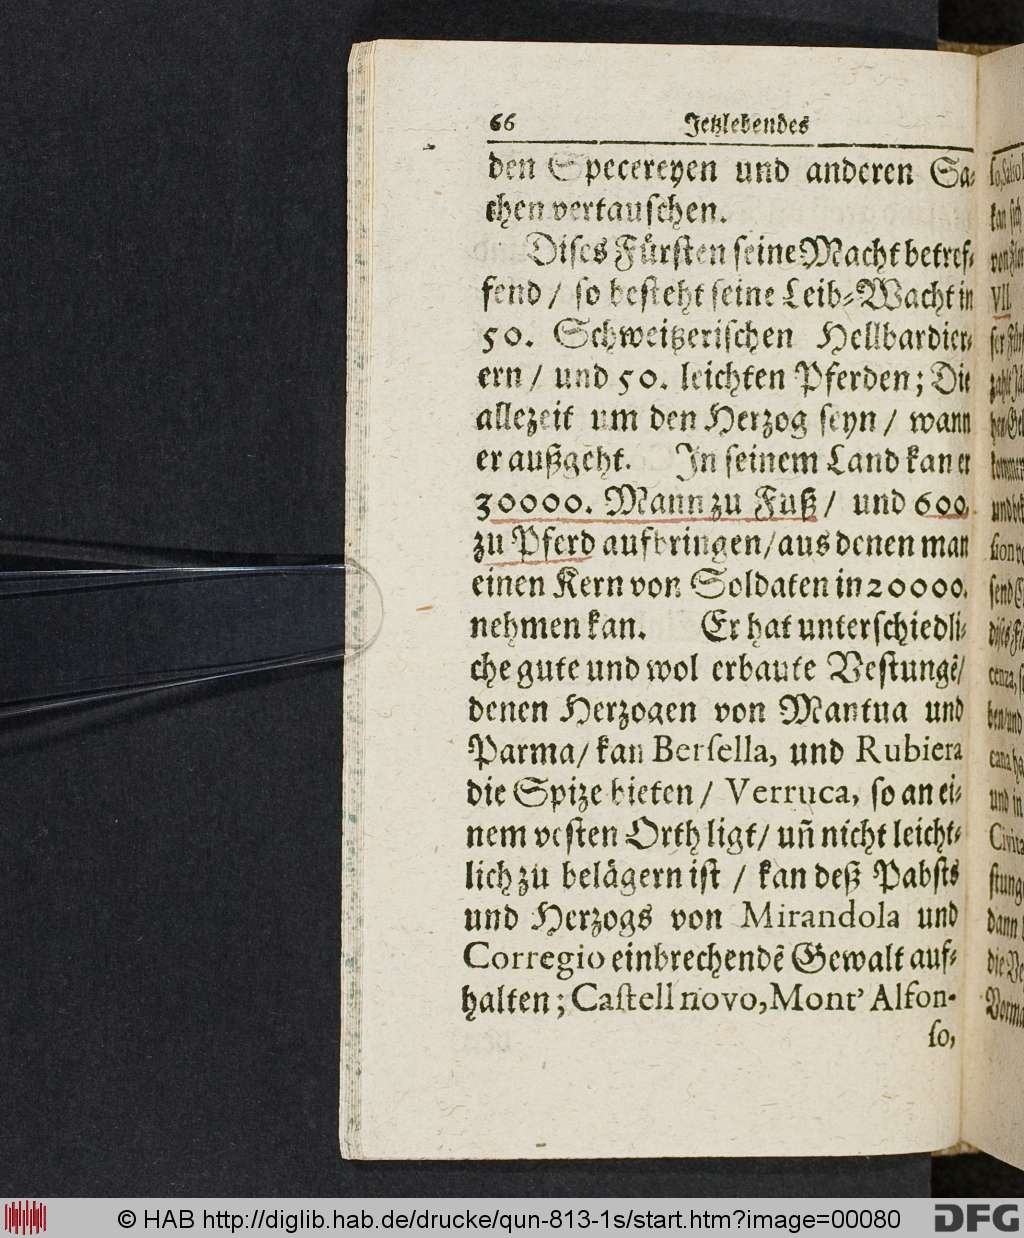 66 Jetzlebendes
den Specereyen und anderen Sa-
chen vertauschen.
Dises Fürsten seine Macht betref-
fend / so besteht seine Leib-Wacht in
50. Schweitzerischen Hellbardier-
ern / und 50. leichten Pferden; Die
allezeit um den Herzog seyn / wann
er außgeht. In seinem Land kan er
30000. Mann zu Fuß / und 600.
zu Pferd aufbringen/aus denen man
einen Kern von Soldaten in 20000.
nehmen kan. Er hat unterschiedli-
che gute und wol erbaute Vestungẽ/
denen Herzogen von Mantua und
Parma/ kan Berſella, und Rubiera
die Spize bieten / Verruca, so an ei-
nem vesten Orth ligt/ uñ nicht leicht-
lich zu belägern ist / kan deß Pabsts
und Herzogs von Mirandola und
Corregio einbrechendẽ Gewalt auf-
halten; Caſtell novo, Mont' Alfon-
ſo,
VII.
© HAB http://diglib.hab.de/drucke/qun-813-1s/start.htm?image=00080
DFG